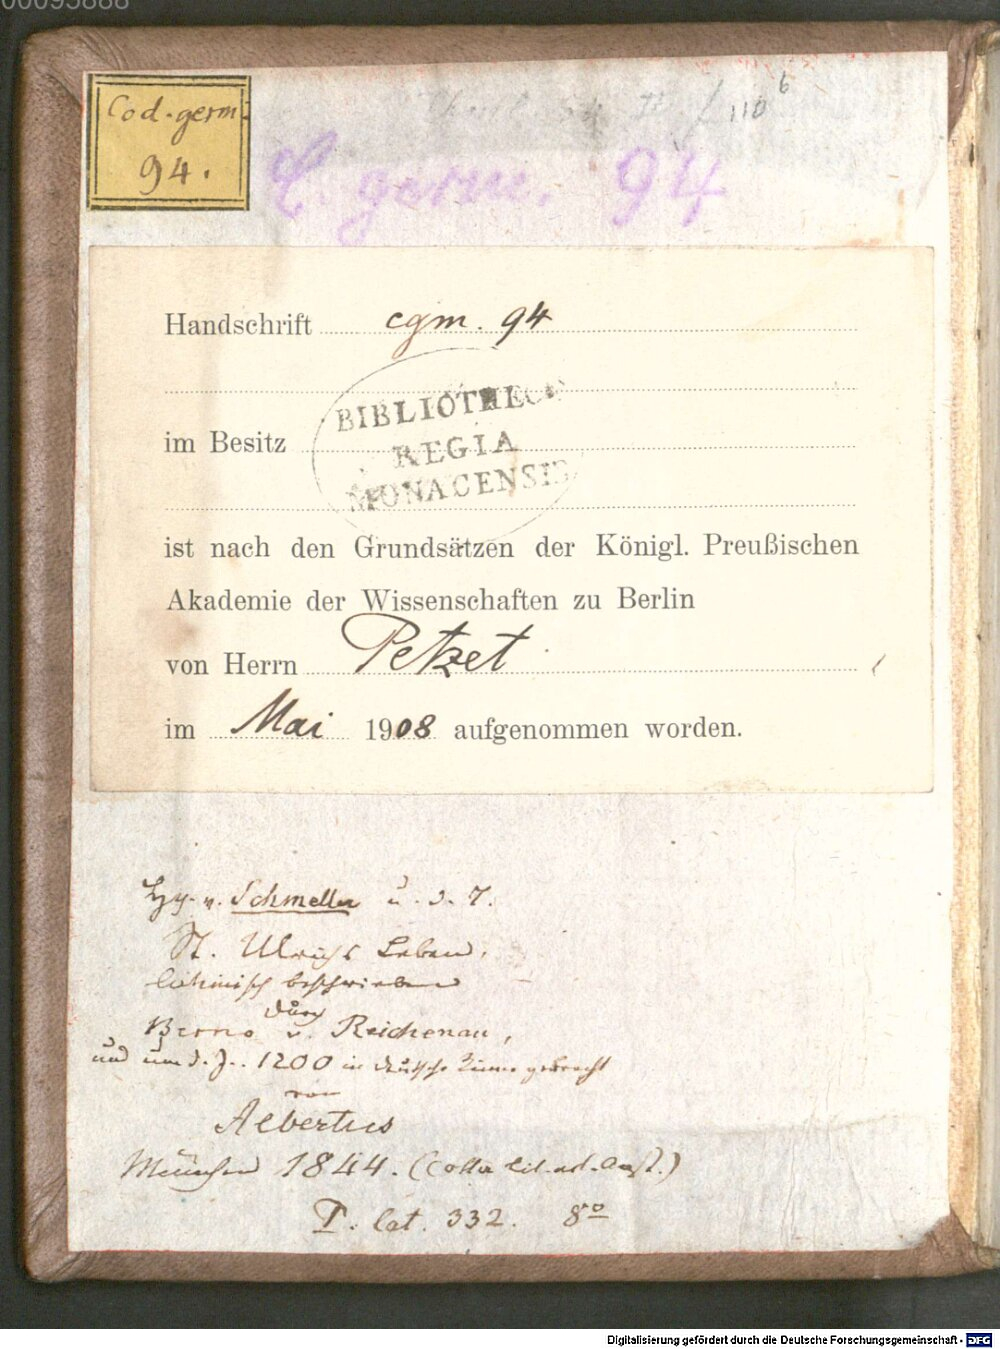 00095888
Cod. germ.
94.
110 6
C. germ. 94
Handschrift cgm. 94
im Besitz
BIBLIOTHECA
REGIA
MONACENSIS
ist nach den Grundsätzen der Königl. Preußischen
Akademie der Wissenschaften zu Berlin
von Herrn Petzet
im Mai 1908 aufgenommen worden.
Hg. v. Schmeller u. d. T.
St. Ulrichs Leben,
lateinisch beschrieben
durch
Berno v. Reichenau,
und um d. J. 1200 in deutsche Reime gebracht
von
Albertus
München 1844. (Cotta lit. art. Anst.)
P. lat. 332. 8º
Digitalisierung gefördert durch die Deutsche Forschungsgemeinschaft - DFG